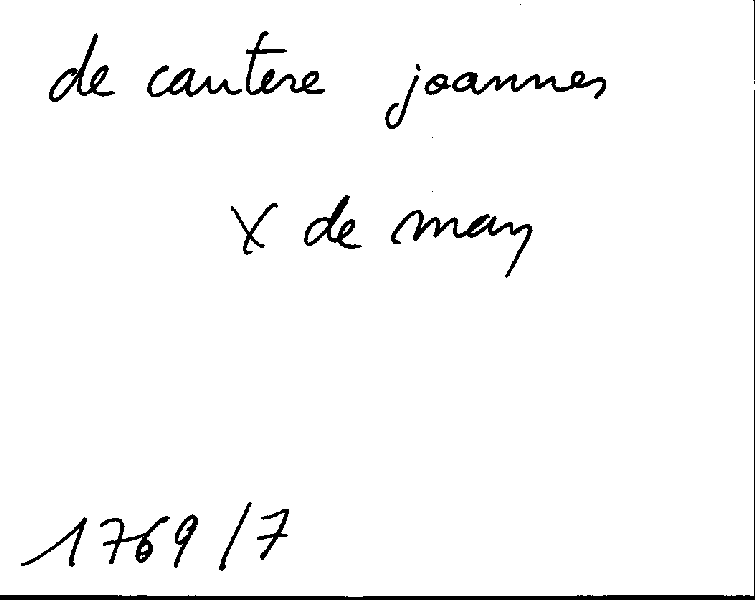 de cautere joannes
X de may
1769/7